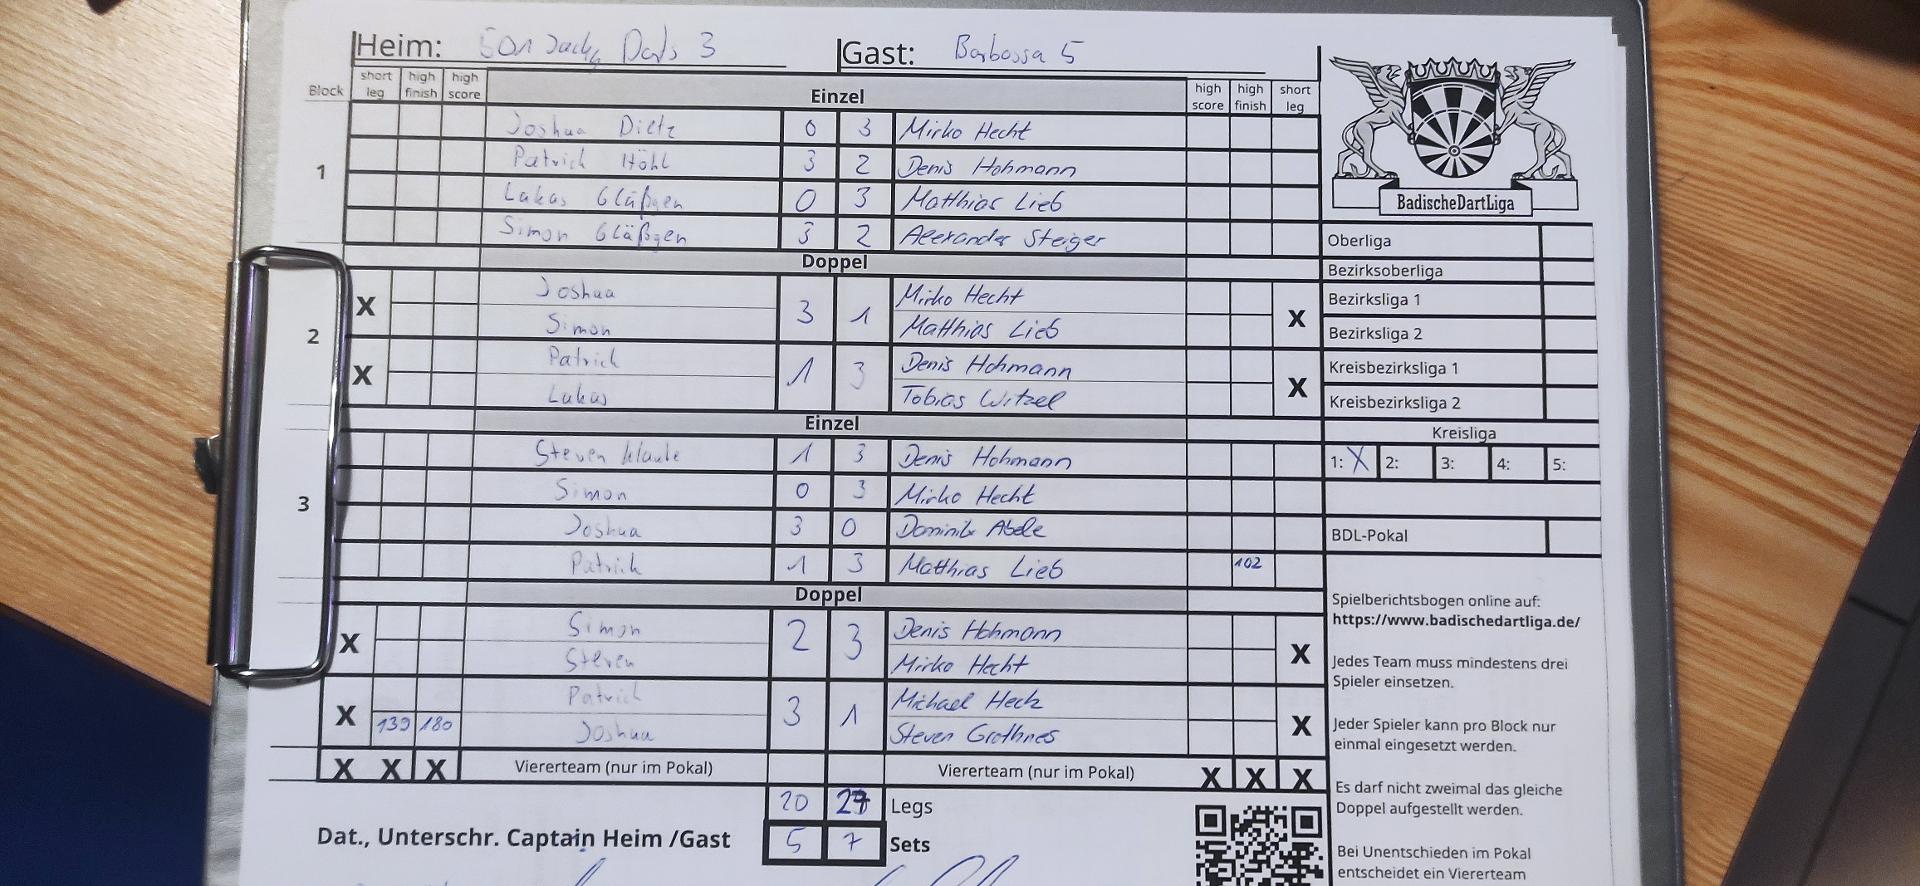 Heim: 501 Jacks Darts 3 Gast: Barbossa 5
Block short leg high finish high score Einzel high score high finish short leg
1
Joshua Dietz 0 3 Mirko Hecht
Patrick Höhl 3 2 Denis Hohmann
Lukas Gläßgen 0 3 Matthias Lieb
Simon Gläßgen 3 2 Alexander Steiger
Doppel
2
X Joshua 3 1 Mirko Hecht X
Simon Matthias Lieb
X Patrick 1 3 Denis Hohmann X
Lukas Tobias Witzel
Einzel
3
Steven 1 3 Denis Hohmann
Simon 0 3 Mirko Hecht
Joshua 3 0 Dominik Abele
Patrick 1 3 Matthias Lieb 102
Doppel
X Simon 2 3 Denis Hohmann X
Steven Mirko Hecht
X Patrick 3 1 Michael Heck X
139 180 Joshua Steven
X X X Viererteam (nur im Pokal) Viererteam (nur im Pokal) X X X
20 Legs
Dat., Unterschr. Captain Heim /Gast 5 7 Sets
BadischeDartLiga
Oberliga
Bezirksoberliga
Bezirksliga 1
Bezirksliga 2
Kreisbezirksliga 1
Kreisbezirksliga 2
Kreisliga
1: X 2: 3: 4: 5:
BDL-Pokal
Spielberichtsbogen online auf:
https://www.badischedartliga.de/
Jedes Team muss mindestens drei
Spieler einsetzen.
Jeder Spieler kann pro Block nur
einmal eingesetzt werden.
Es darf nicht zweimal das gleiche
Doppel aufgestellt werden.
Bei Unentschieden im Pokal
entscheidet ein Viererteam